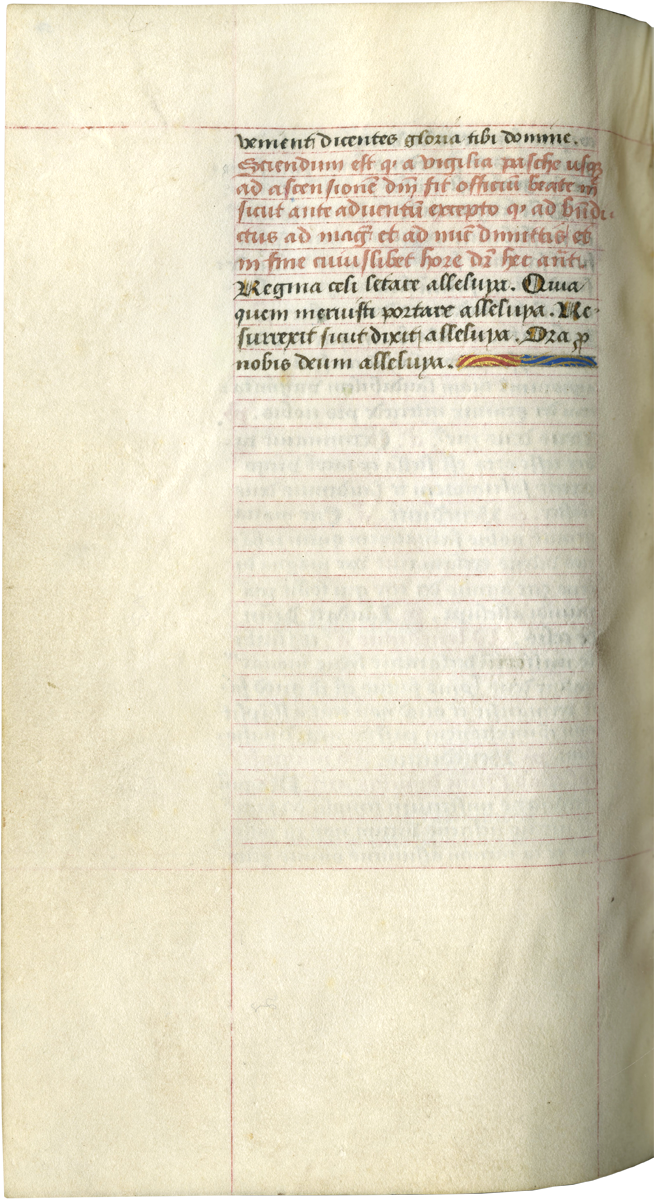 venient dicentes gloria tibi domine.
Sciendum est q a vigilia pasche usq
ad ascensionē dm̄ fit officiū beate m̄
sicut ante adventū excepto q ad bn̄di
ctus ad mag̃ et ad nūc dimittis et
in fine cuiuslibet hore dr̄ hec ant
Regina celi letare alleluya. Quia
quem meruisti portare alleluya. Re
surrexit sicut dixit alleluya. Ora p
nobis deum alleluya.